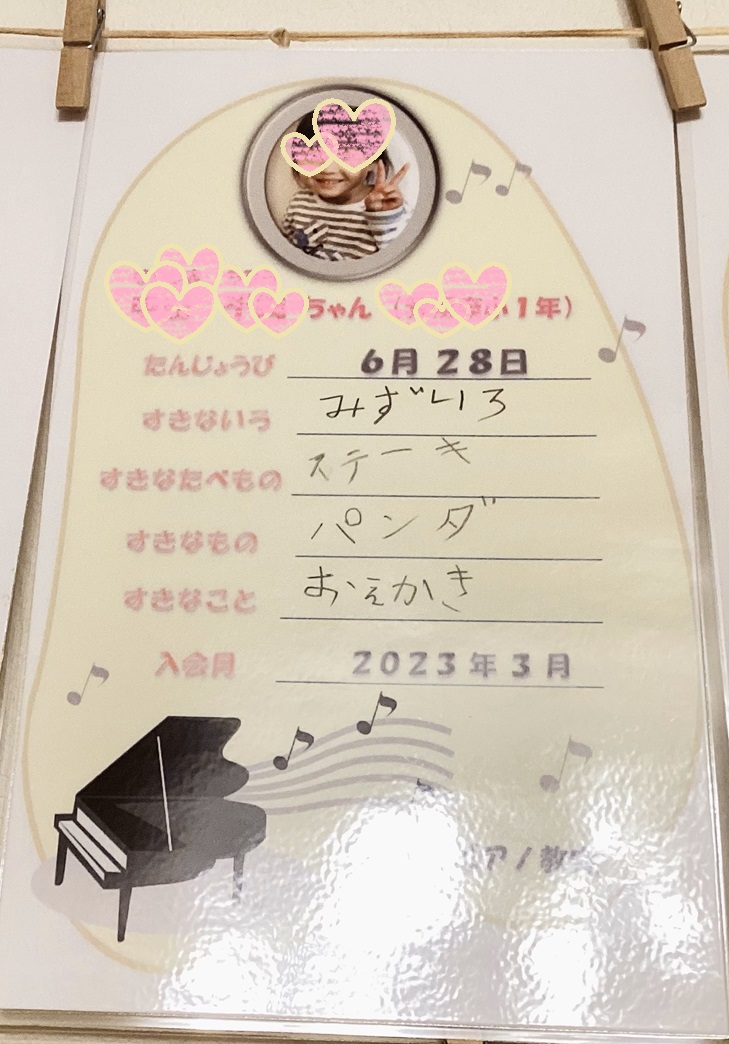 ちゃん 小1年）
たんじょうび 6月28日
すきないろ みずいろ
すきなたべもの ステーキ
すきなもの パンダ
すきなこと おえかき
入会月 2023年3月
ピアノ教室